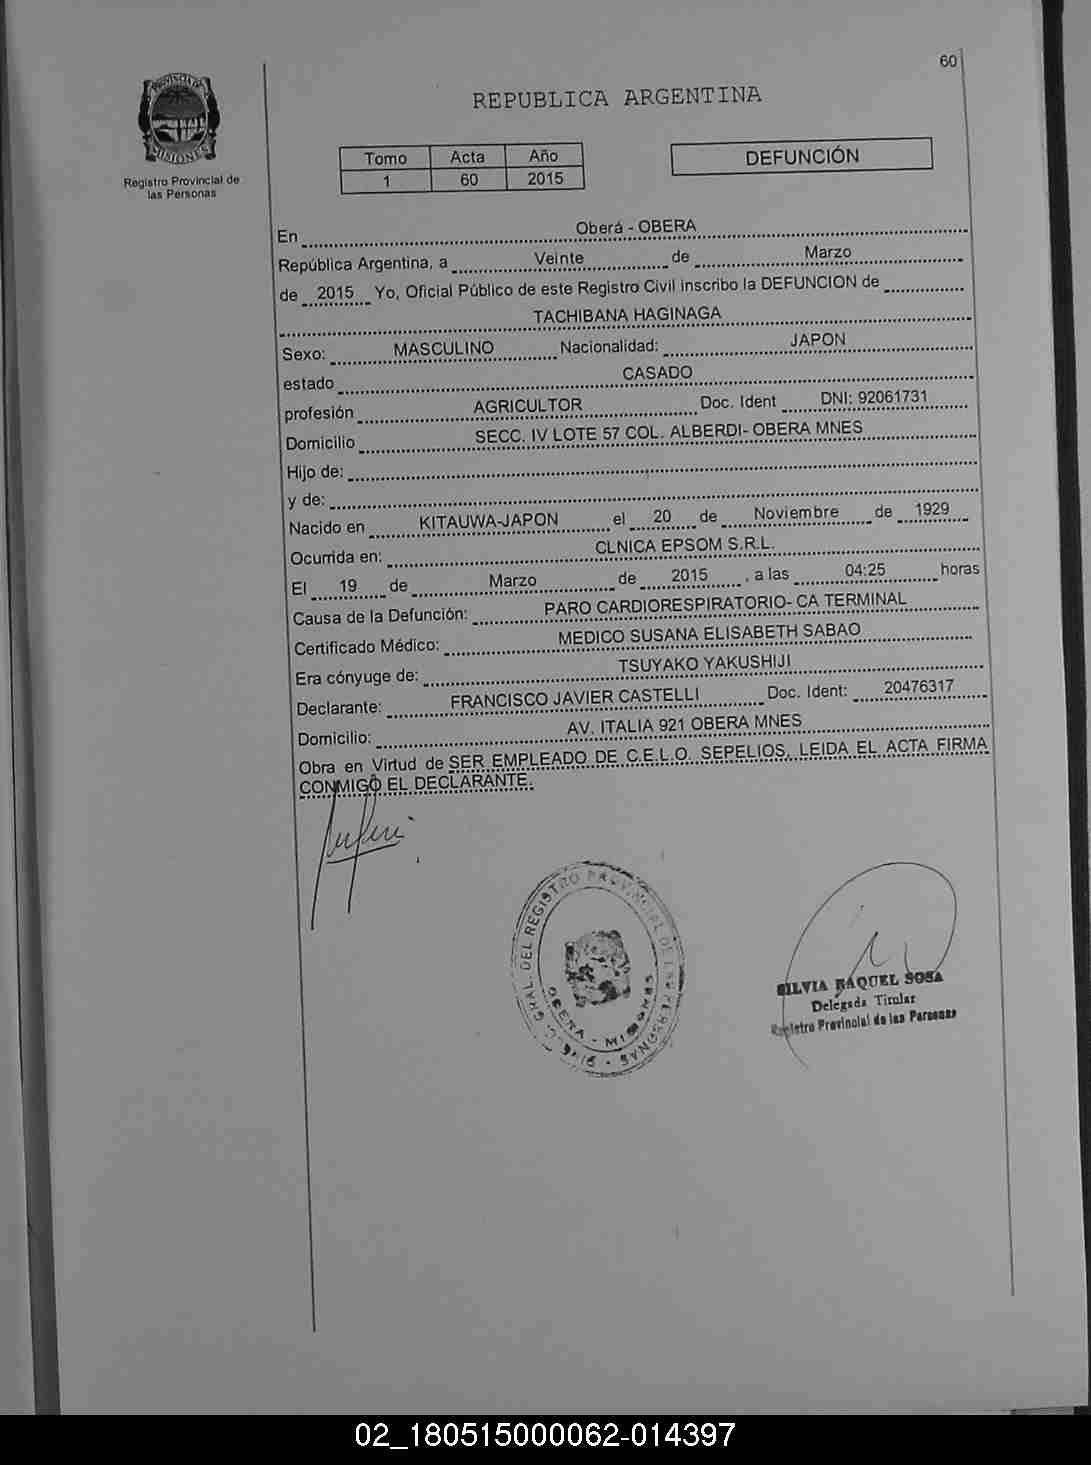 60
PROVINCIA DE
MISIONES
Registro Provincial de
las Personas
REPUBLICA ARGENTINA
Tomo Acta Año
1 60 2015
DEFUNCIÓN
En Oberá - OBERA
República Argentina, a Veinte de Marzo
de 2015 Yo, Oficial Público de este Registro Civil inscribo la DEFUNCION de
TACHIBANA HAGINAGA
Sexo: MASCULINO Nacionalidad: JAPON
estado CASADO
profesión AGRICULTOR Doc. Ident DNI: 92061731
Domicilio SECC. IV LOTE 57 COL. ALBERDI- OBERA MNES
Hijo de:
y de:
Nacido en KITAUWA-JAPON el 20 de Noviembre de 1929
Ocurrida en: CLNICA EPSOM S.R.L.
El 19 de Marzo de 2015 , a las 04:25 horas
Causa de la Defunción: PARO CARDIORESPIRATORIO- CA TERMINAL
Certificado Médico: MEDICO SUSANA ELISABETH SABAO
Era cónyuge de: TSUYAKO YAKUSHIJI
Declarante: FRANCISCO JAVIER CASTELLI Doc. Ident: 20476317
Domicilio: AV. ITALIA 921 OBERA MNES
Obra en Virtud de SER EMPLEADO DE C.E.L.O. SEPELIOS, LEIDA EL ACTA FIRMA
CONMIGO EL DECLARANTE.
GRAL. DEL REGISTRO PROVINCIAL DE LAS PERSONAS
OBERA - MISIONES
SILVIA RAQUEL SOSA
Delegada Titular
Registro Provincial de las Personas
02_180515000062-014397